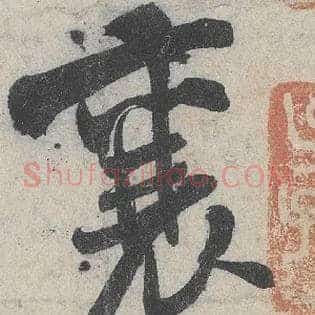 襄
Shufaziliao.com